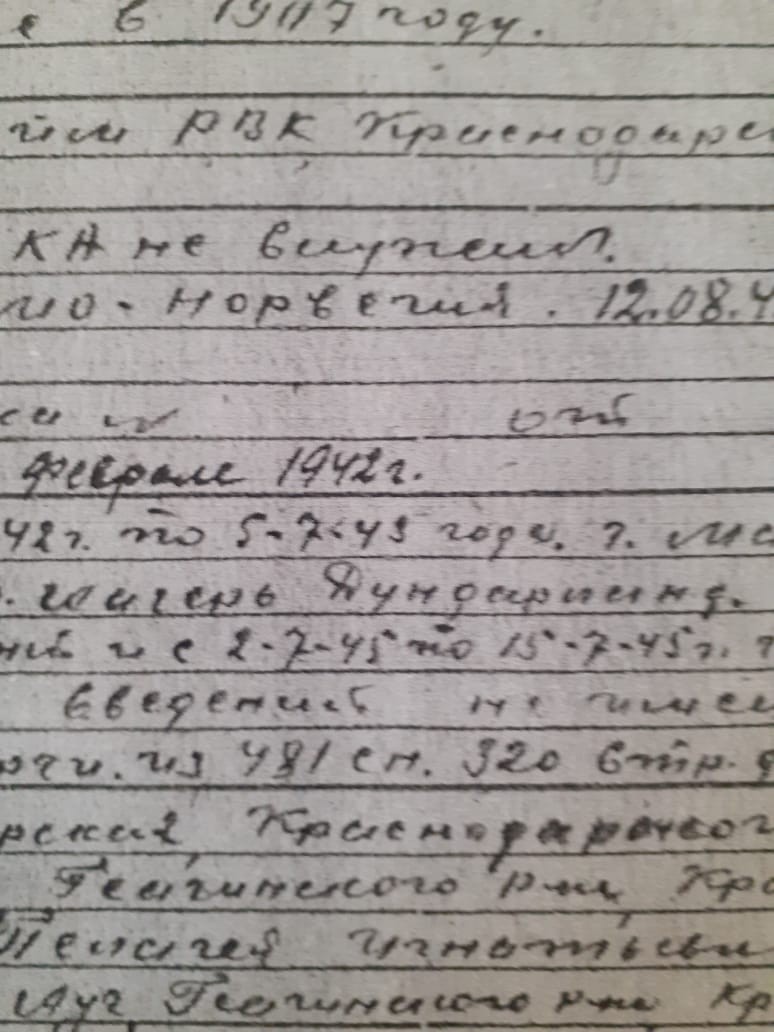 в 19117 году.
РВК Краснодарс
КА не служил.
мо - Норвегия . 12.08.4
ой
феврале 1942г.
42г. по 5-7-43 года. г. Мо
. лагерь Дундерланд.
ний и с 2-7-45 по 15-7-45г. г
Сведений не имее
рти. из 481 сп. 320 стр. д
рский, Краснодарског
Гиагинского р-на Кра
Пелагея Игнатьевн
Гиагинского р-на Кр